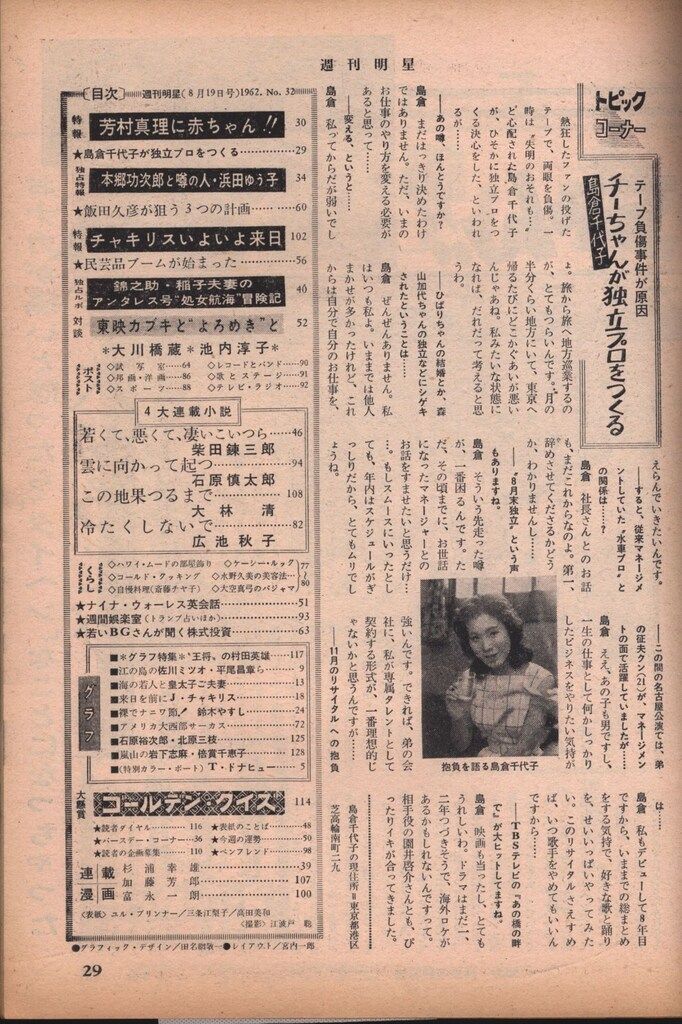 週刊明星
トピックコーナー
テープ負傷事件が原因
チーちゃんが独立プロをつくる
島倉千代子
熱狂したファンの投げた
テープで、両眼を負傷。一
時は〝失明のおそれも…〟
ど心配された島倉千代子
が、ひそかに独立プロをつ
くる決心をした、といわれ
るが……
――あの噂、ほんとうですか？
島倉 まだはっきり決めたわけ
ではありません。ただ、いまの
お仕事のやり方を変える必要が
あると思って……
――変える、というと……
島倉 私ってからだが弱いでし
ょ。旅から旅へ地方巡業するの
が、とてもつらいんです。月の
半分くらい地方にいて、東京へ
帰るたびにどこかぐあいが悪い
んじゃあね。私みたいな状態に
なれば、だれだって考えると思
うわ。
――ひばりちゃんの結婚とか、森
山加代ちゃんの独立などにシゲキ
されたということは……
島倉 ぜんぜんありません。私
はいつも私よ。いままでは他人
まかせが多かったけれど、これ
からは自分で自分のお仕事を、
えらんでいきたいんです。
――すると、従来マネージメ
ントしていた〝水車プロ〟と
の関係は……？
島倉 社長さんとのお話
も、まだこれからなのよ。第一、
辞めさせてくださるかどう
か、わかりませんし……
――〝8月末独立〟という声
もありますね。
島倉 そういう先走った噂
が、一番困るんです。た
だ、その頃までに、お世話
になったマネージャーとの
お話をすませたいと思うだけ…
…。もしスムースにいったとし
ても、年内はスケジュールがぎ
っしりだから、とてもムリでし
ょうね。
――この間の名古屋公演では、弟
の征夫クン(21)が マネージメン
トの面で活躍していましたが……
島倉 ええ、あの子も男ですし、
一生の仕事として何かしっかり
したビジネスをやりたい気持が
強いんです。できれば、弟の会
社に、私が専属タレントとして
契約する形式が、一番理想的じ
ゃないかと思うんですが……
――11月のリサイタル への抱負
は……
島倉 私もデビューして8年目
ですから、いままでの総まとめ
をする気持で、好きな歌と踊り
を、せいいっぱいやってみた
い。このリサイタルさえすめ
ば、いつ歌手をやめてもいいん
ですから……
――TBSテレビの『あの橋の畔
で』が大ヒットしてますね。
島倉 映画も当ったし、とても
うれしいわ。ドラマはまだ一、
二年つづきそうで、海外ロケが
あるかもしれないんですって。
相手役の園井啓介さんとも、ぴ
ったりイキが合ってきました。
島倉千代子の現住所＝東京都港区
芝高輪南町二九
抱負を語る島倉千代子
〔目次〕週刊明星(8月19日号)1962. No. 32
特報 芳村真理に赤ちゃん!! 30
★島倉千代子が独立プロをつくる 29
独占特報 本郷功次郎と噂の人・浜田ゆう子 34
★飯田久彦が狙う3つの計画 60
特報 チャキリスいよいよ来日 102
★民芸品ブームが始まった 56
独占ルポ 錦之助・稲子夫妻の
アンタレス号〝処女航海〟冒険記 40
対談 東映カブキと〝よろめき〟と 52
＊大川橋蔵＊池内淳子＊
ポスト
◇試写室 64
◇邦画・洋画 86
◇スポーツ 88
◇レコードとバンド 90
◇歌とステージ 91
◇テレビ・ラジオ 92
4大連載小説
若くて、悪くて、凄いこいつら 46
柴田錬三郎
雲に向かって起つ 94
石原慎太郎
この地果つるまで 108
大林 清
冷たくしないで 82
広池秋子
くらし
◇ハワイ・ムードの部屋飾り ◇ケーシー・ルック
◇コールド・クッキング ◇水野久美の美容法
◇自慢料理(斎藤チヤ子) ◇大空真弓のパジャマ
77～80
★ナイナ・ウォーレス英会話 51
★週間娯楽室(トランプ占いほか) 93
★若いBGさんが聞く株式投資 63
グラフ
■＊グラフ特集＊〝王将〟の村田英雄 117
■江の島の佐川ミツオ・平尾昌章ら 9
■海の若人と皇太子ご夫妻 13
■来日を前にJ・チャキリス 18
■裸でナニワ節！ 鈴木やすし 24
■アメリカ大西部サーカス 72
■石原裕次郎・北原三枝 125
■嵐山の岩下志麻・倍賞千恵子 128
■(特別カラー・ポート)T・ドナヒュー 5
大懸賞 ゴールデン・クイズ 114
★読者ダイヤル 116
★バースデー・コーナー 36
★読者の企画募集 110
★表紙のことば 48
★今週の運勢 50
★ペンフレンド 98
連載漫画
杉浦幸雄 39
加藤芳郎 107
富永一朗 100
〈表紙〉ユル・ブリンナー／三条江梨子／高田美和
〈撮影〉江波戸 聰
●グラフィック・デザイン／田名網敬一●レイアウト／宮内一郎
29